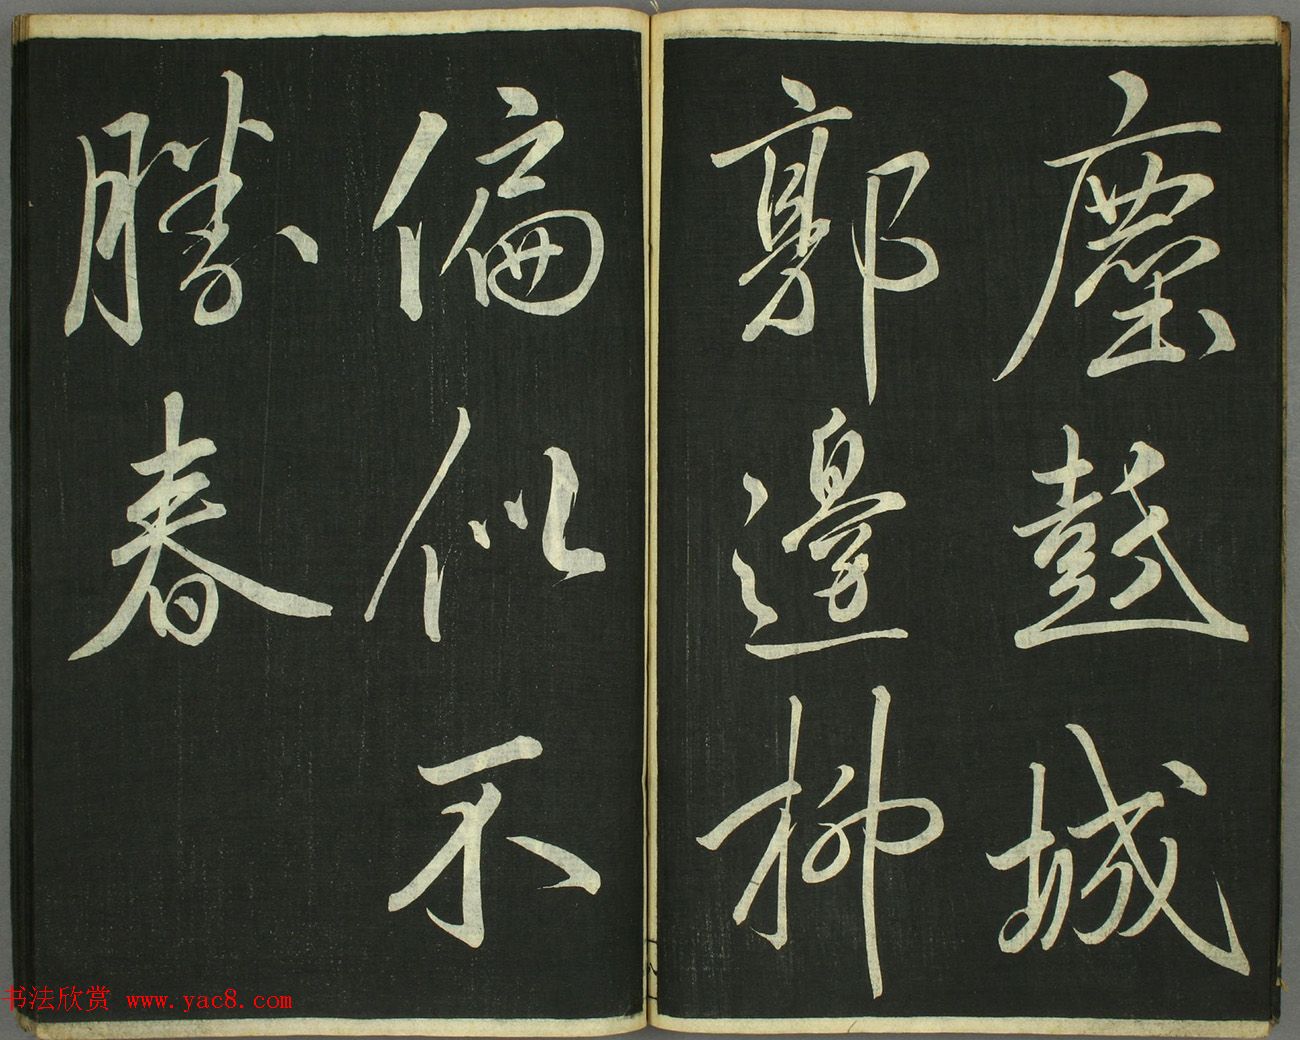 塵鼓城
郭邊柳
偏似不
勝春
书法欣赏 www.yac8.com